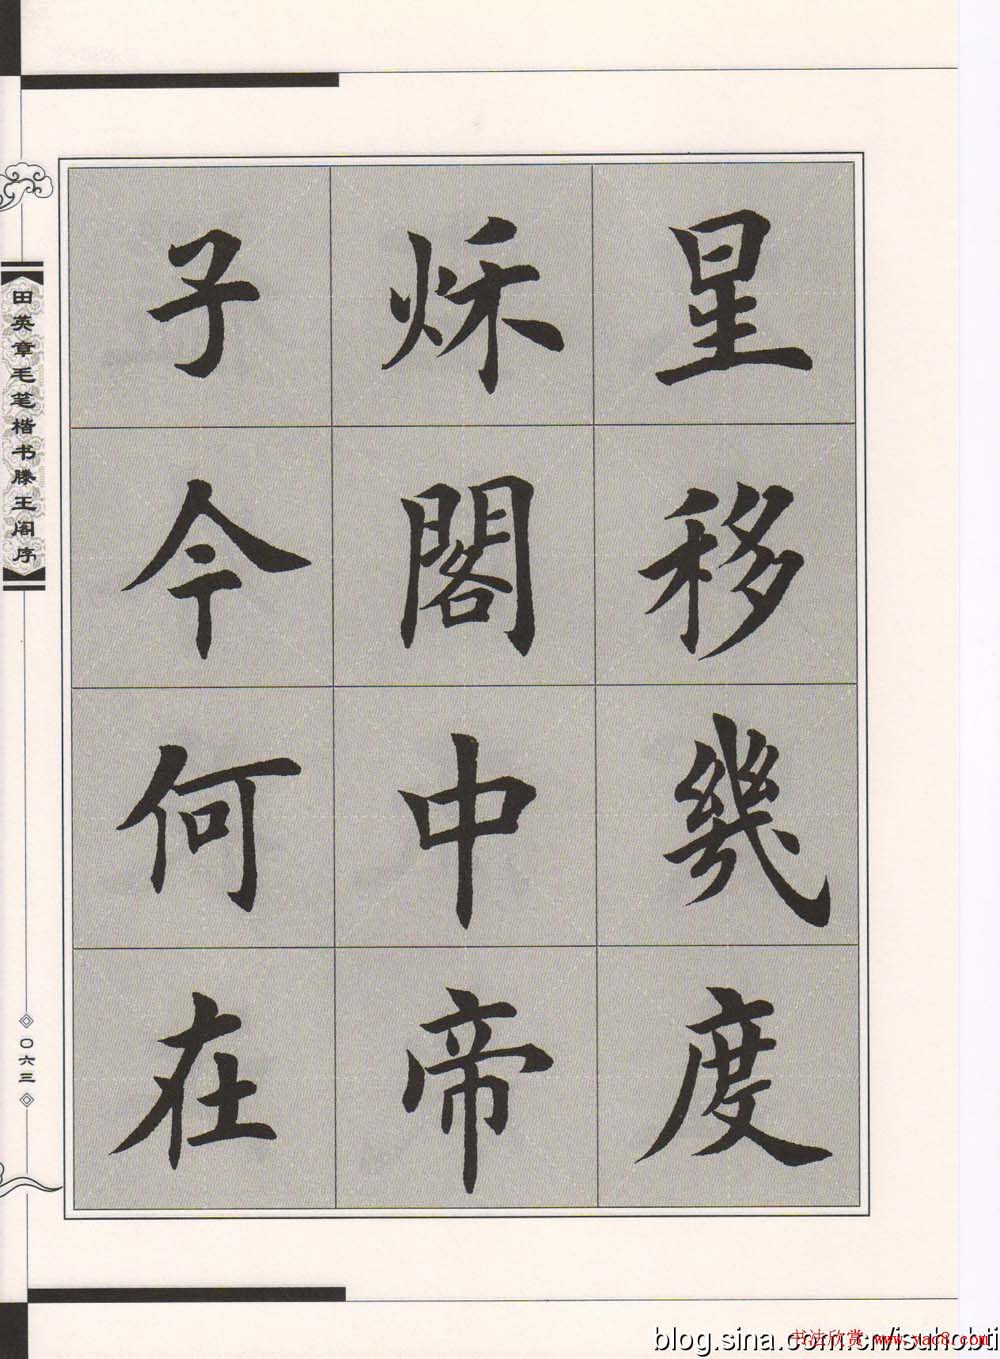 星移幾度
秌閣中帝
子今何在
田英章毛笔楷书滕王阁序
〇六三
blog.sina.com.cn/isuhobti
书法欣赏 www.yac8.com